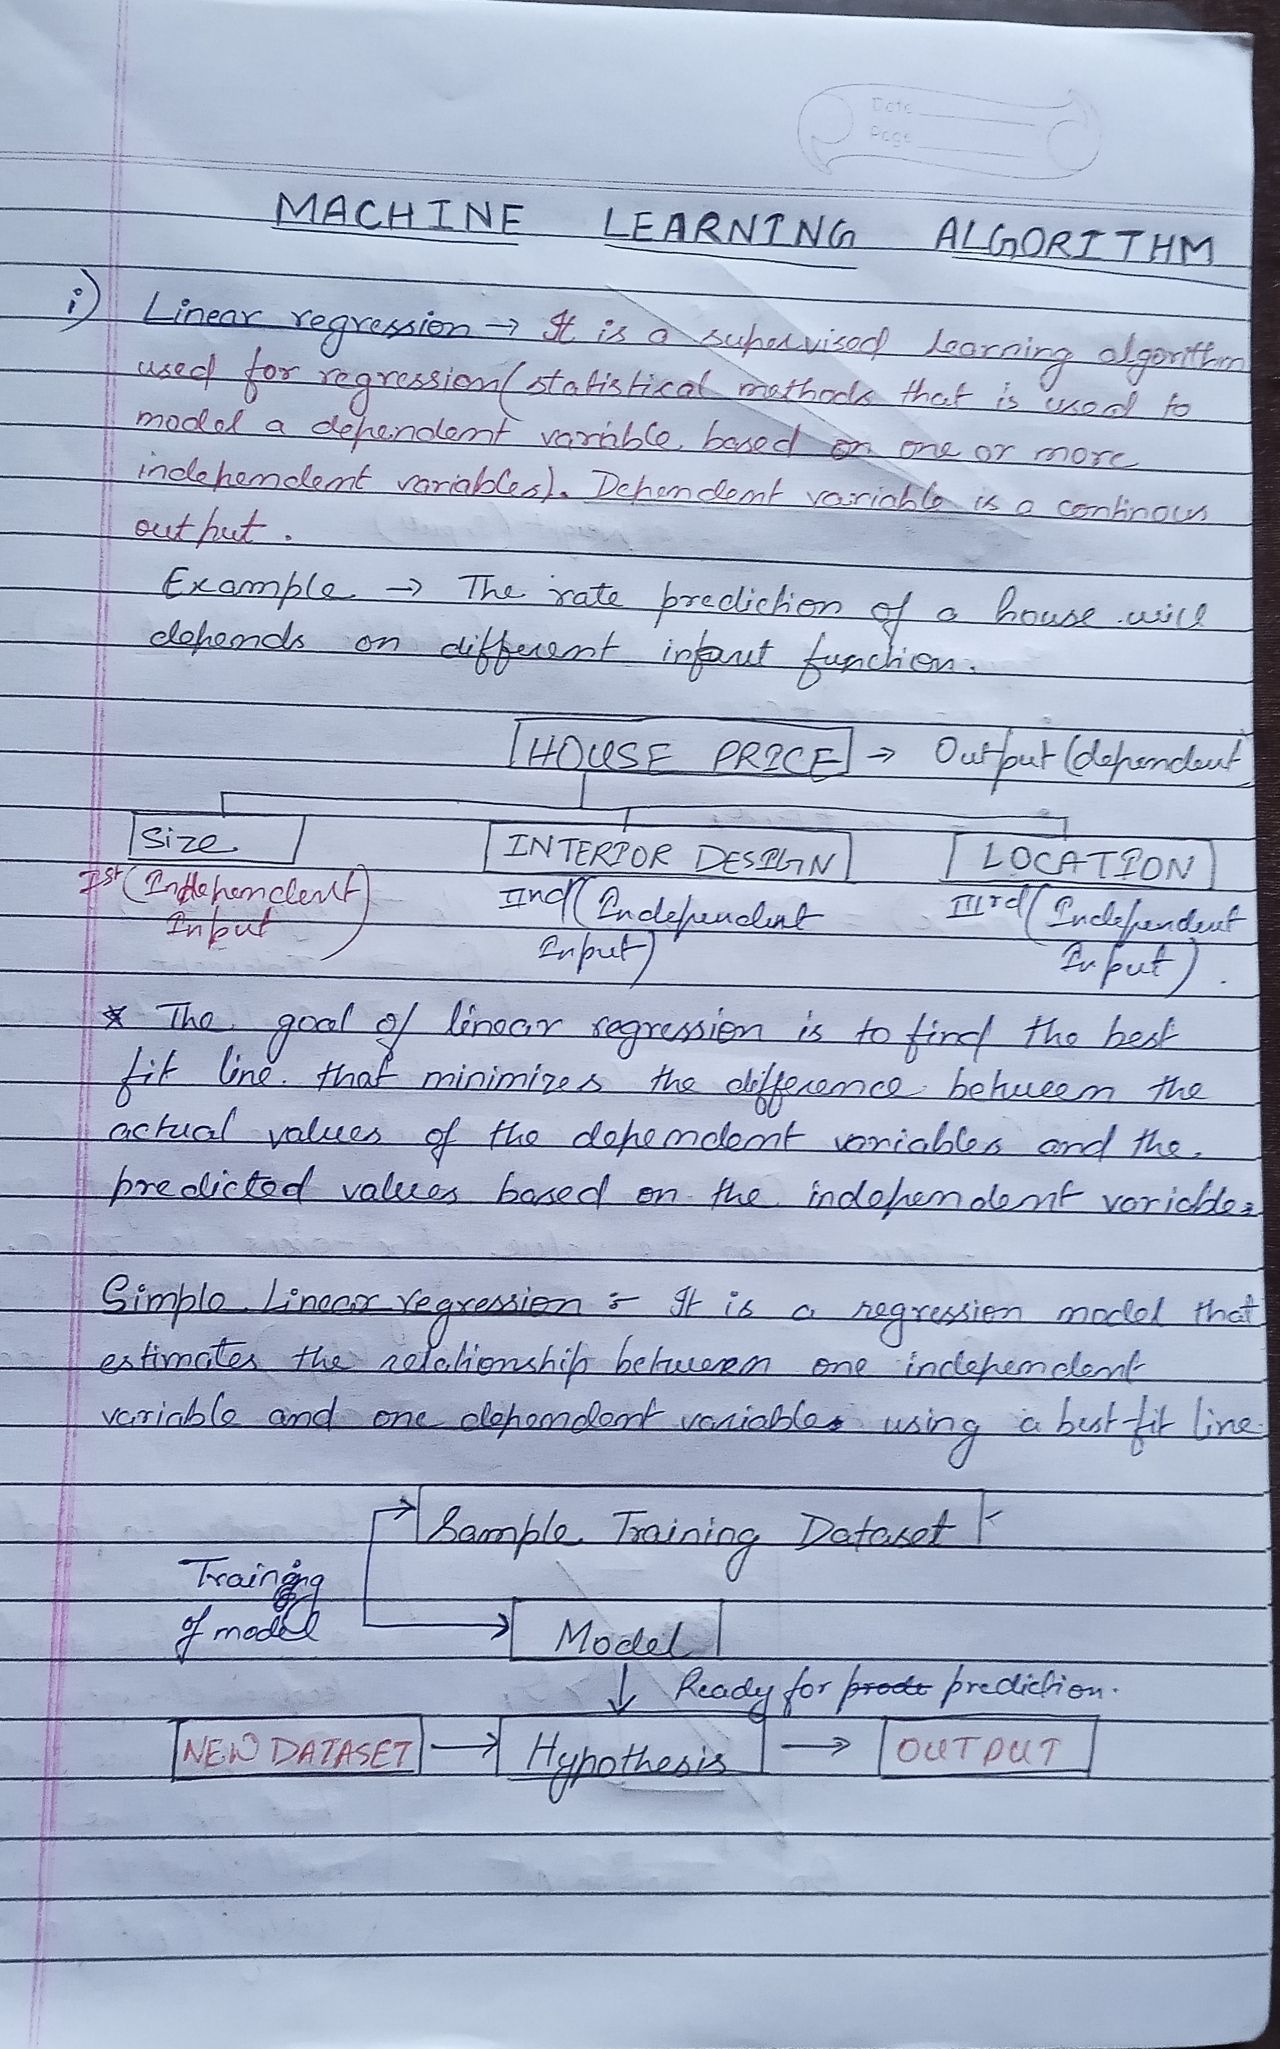 Date
Page
MACHINE LEARNING ALGORITHM
i) Linear regression → It is a supervised learning algorithm
used for regression (statistical methods that is used to
model a dependent variable based on one or more
independent variables). Dependent variable is a continous
output.
Example → The rate prediction of a house will
depends on different function.
HOUSE PRICE → Output (dependent
Size INTERIOR DESIGN LOCATION
Ist (Independent IInd (Independent IIIrd (Independent
Input) Input) Input).
* The goal of linear regression is to find the best
fit line that minimizes the difference between the
actual values of the dependent variables and the
predicted values based on the independent variables
Simple Linear regression :- It is a regression model that
estimates the relationship between one independent
variable and one dependent variable using a best-fit line.
Sample Training Dataset
Training
of model
Model
Ready for prediction.
NEW DATASET → Hypothesis → OUTPUT